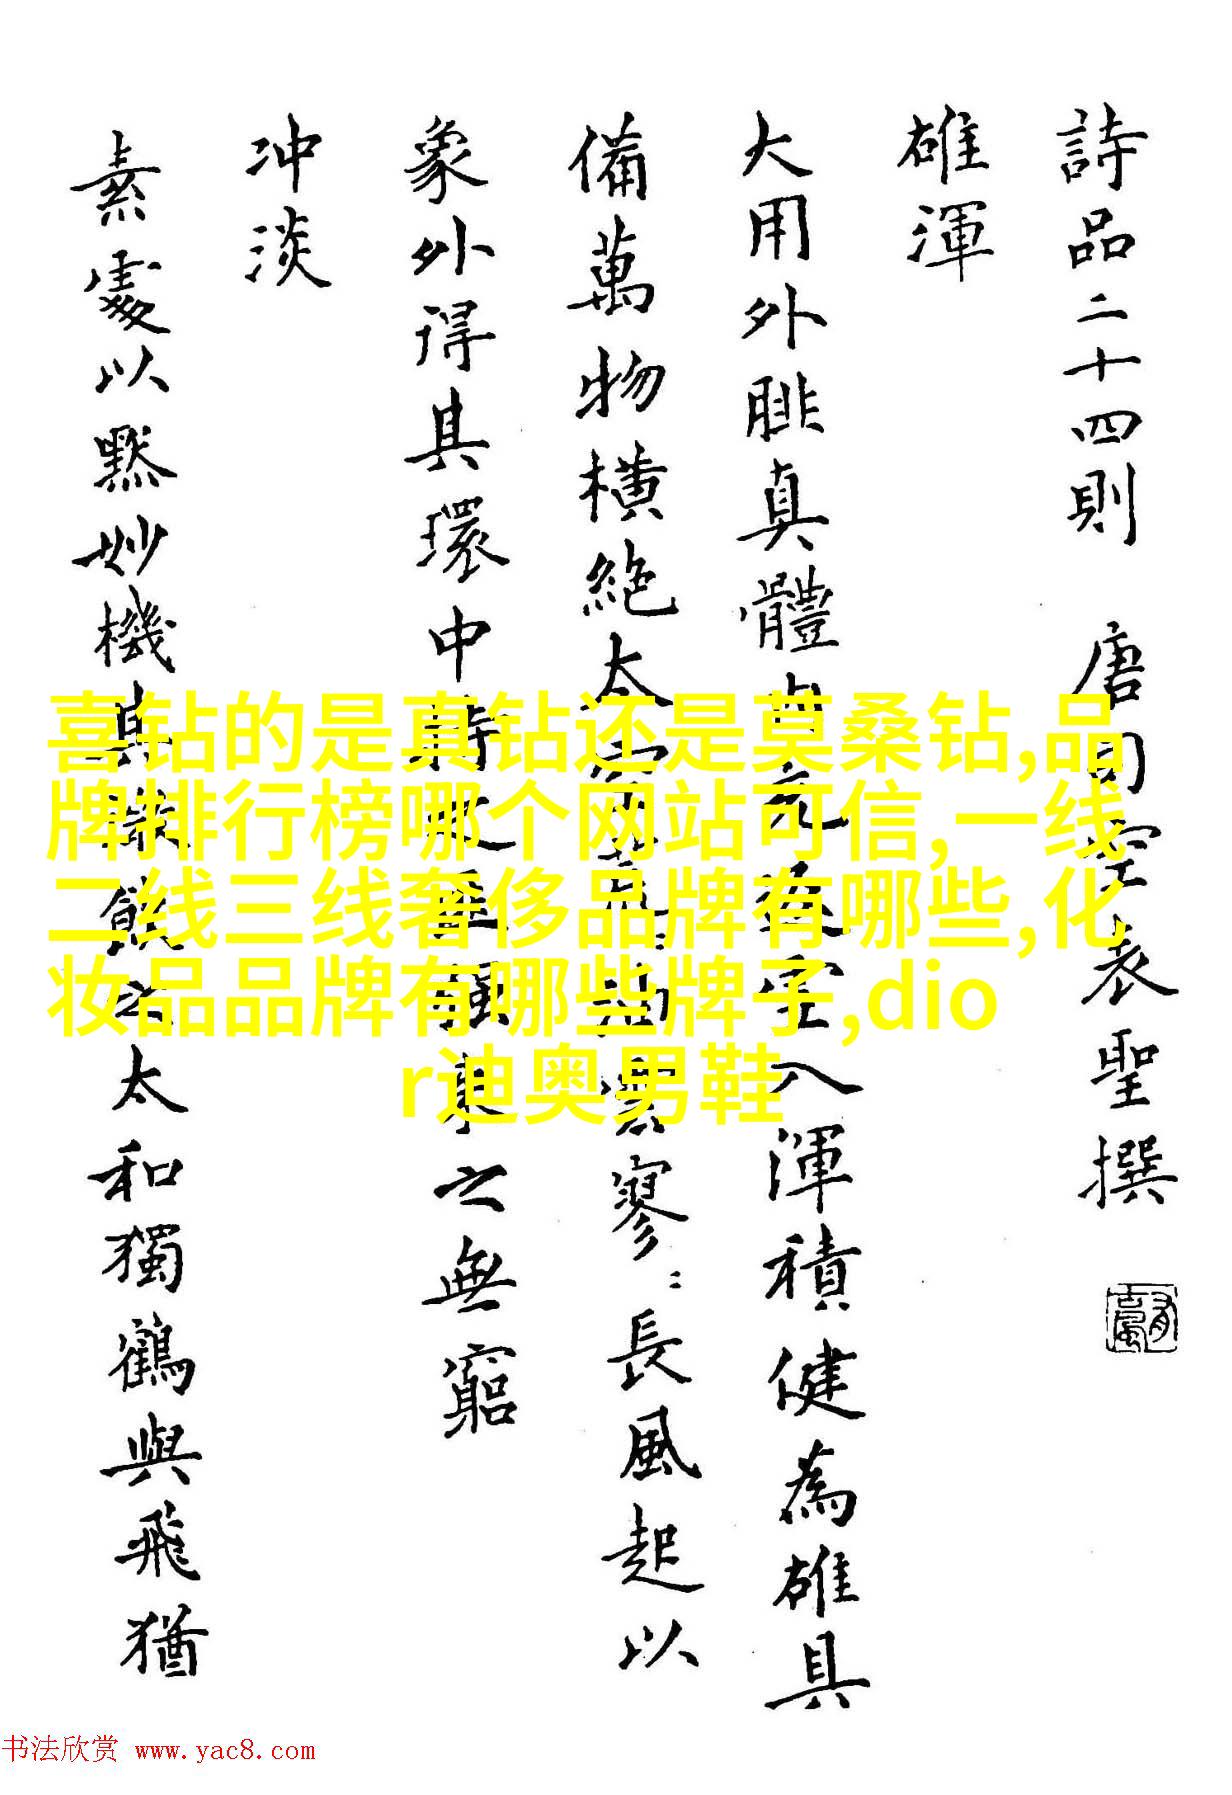 詩品二十四則 唐司空表聖撰
雄渾
大用外腓真體内充返虛入渾積健為雄具
備萬物橫絕太空荒〻油雲寥〻長風起以
象外得其環中持之匪強来之無窮
冲淡
素處以默妙機其微飲之太和獨鶴與飛猶
喜钻的是真钻还是莫桑钻,品
牌排行榜哪个网站可信,一线
二线三线奢侈品牌有哪些,化
妆品品牌有哪些牌子,dio
r迪奥男鞋
书法欣赏 www.yac8.com